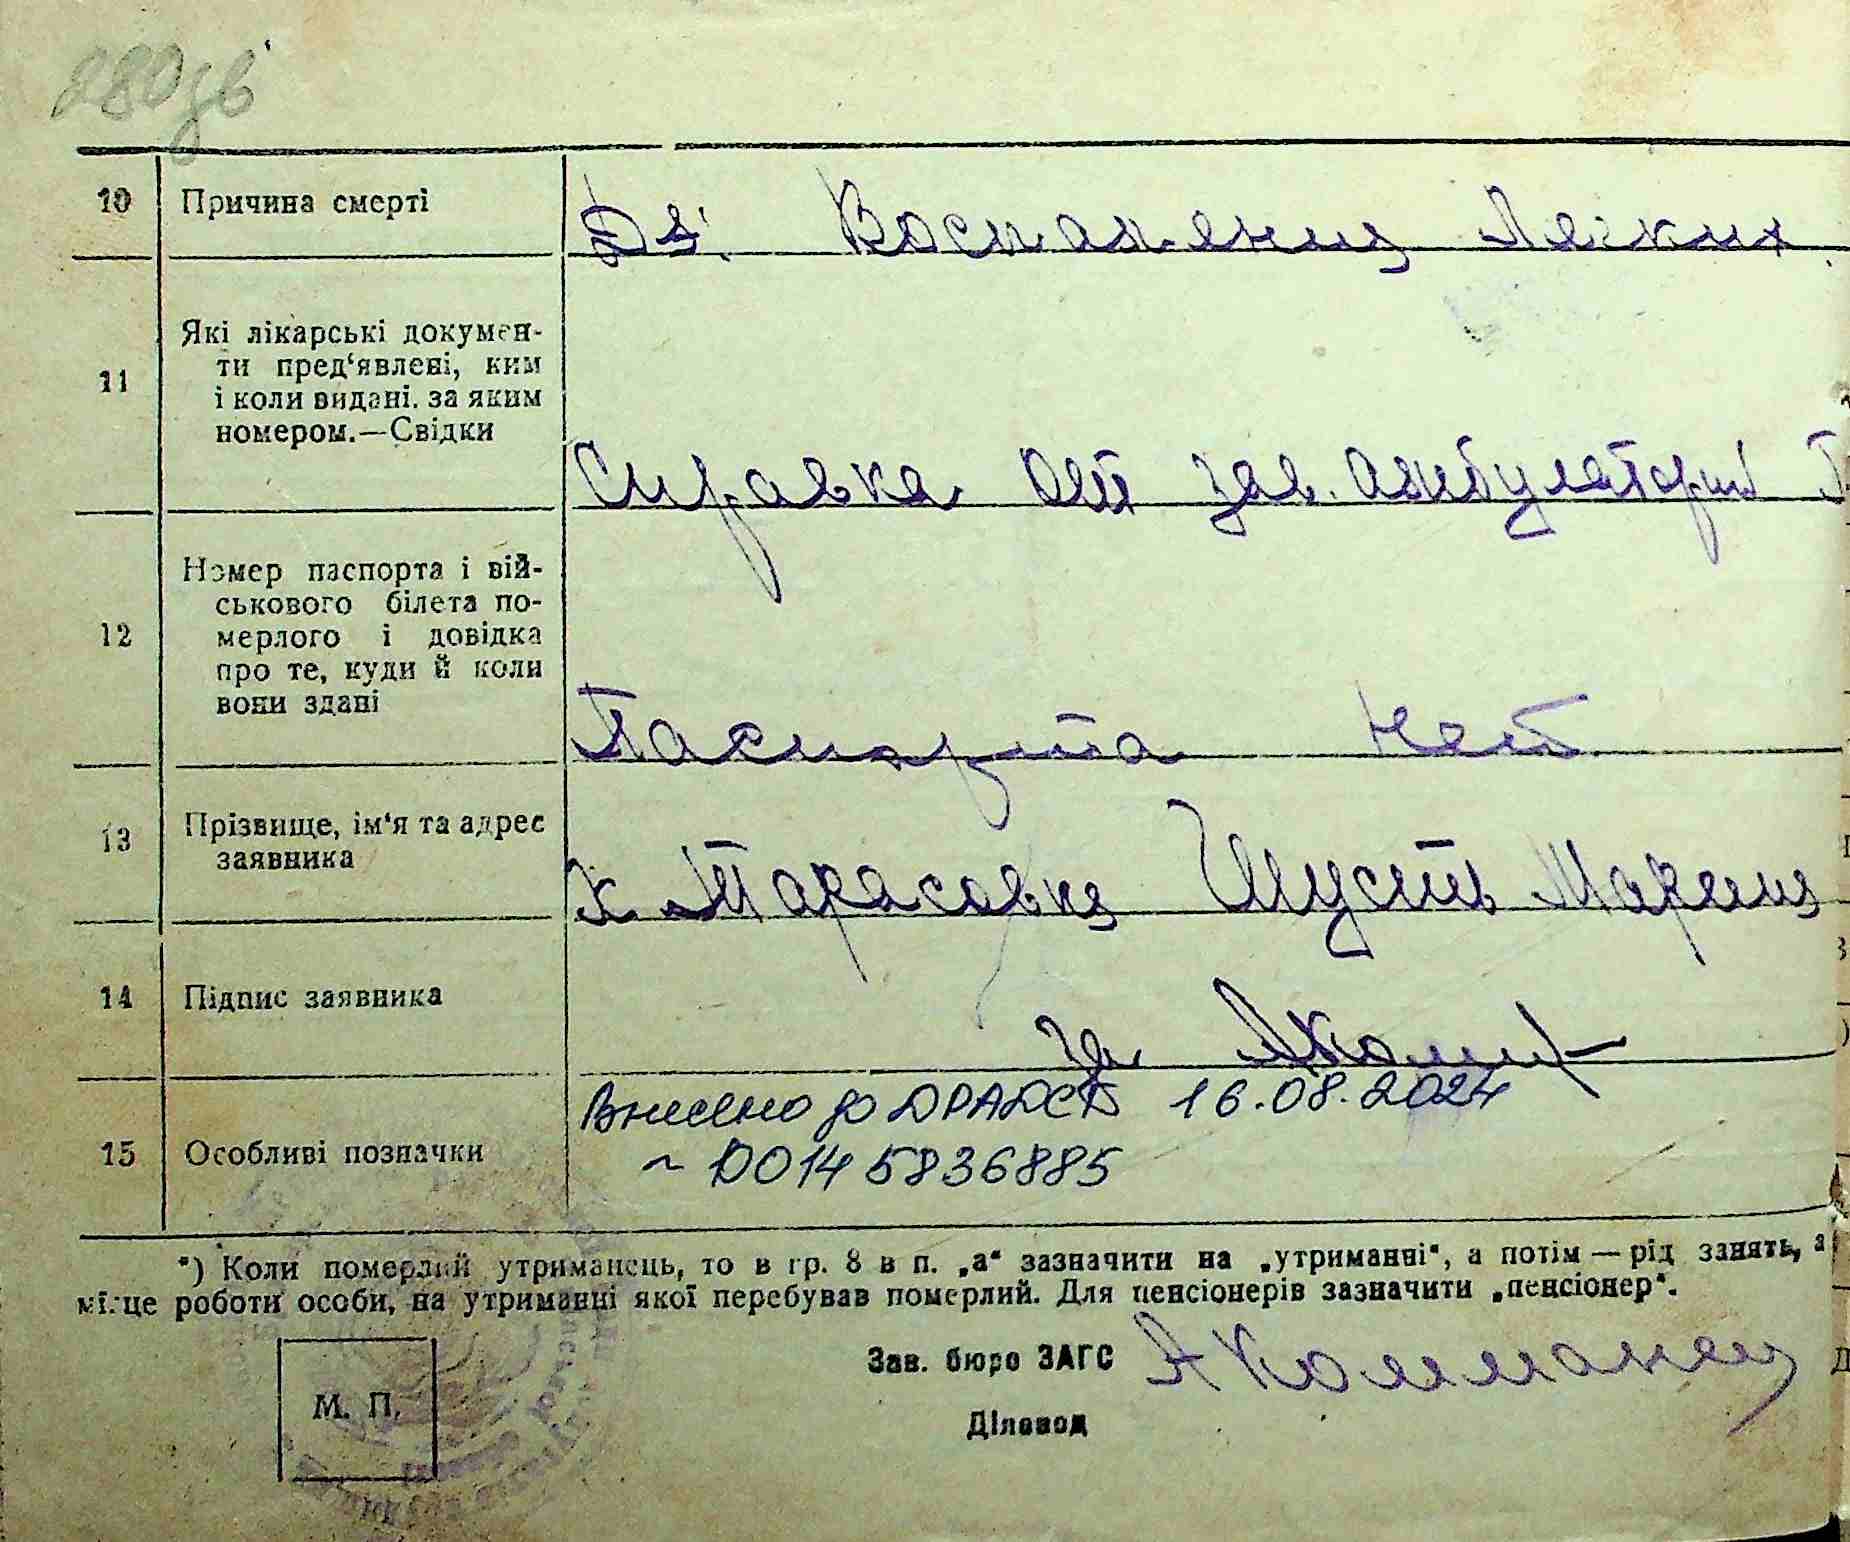 280зв
10 Причина смерті Ds: Воспаления Легких
11 Які лікарські докумен-
ти пред‘явлені, ким
і коли видані, за яким
номером.—Свідки
Справка от зав. амбулаторий
12 Номер паспорта і вій-
ськового білета по-
мерлого і довідка
про те, куди й коли
вони здані
Паспорта нет
13 Прізвище, ім‘я та адрес
заявника
х. Тарасовка Шусть Мария
14 Підпис заявника за
Внесено до ДРАЦСГ 16.08.2024
15 Особливі позначки
~ 00145836885
*) Коли померлий утриманець, то в гр. 8 в п. „а“ зазначити на „утриманні“, а потім — рід занять, а
місце роботи особи, на утриманні якої перебував померлий. Для пенсіонерів зазначити „пенсіонер“.
Зав. бюро ЗАГС А Комманец
М. П.
Діловод